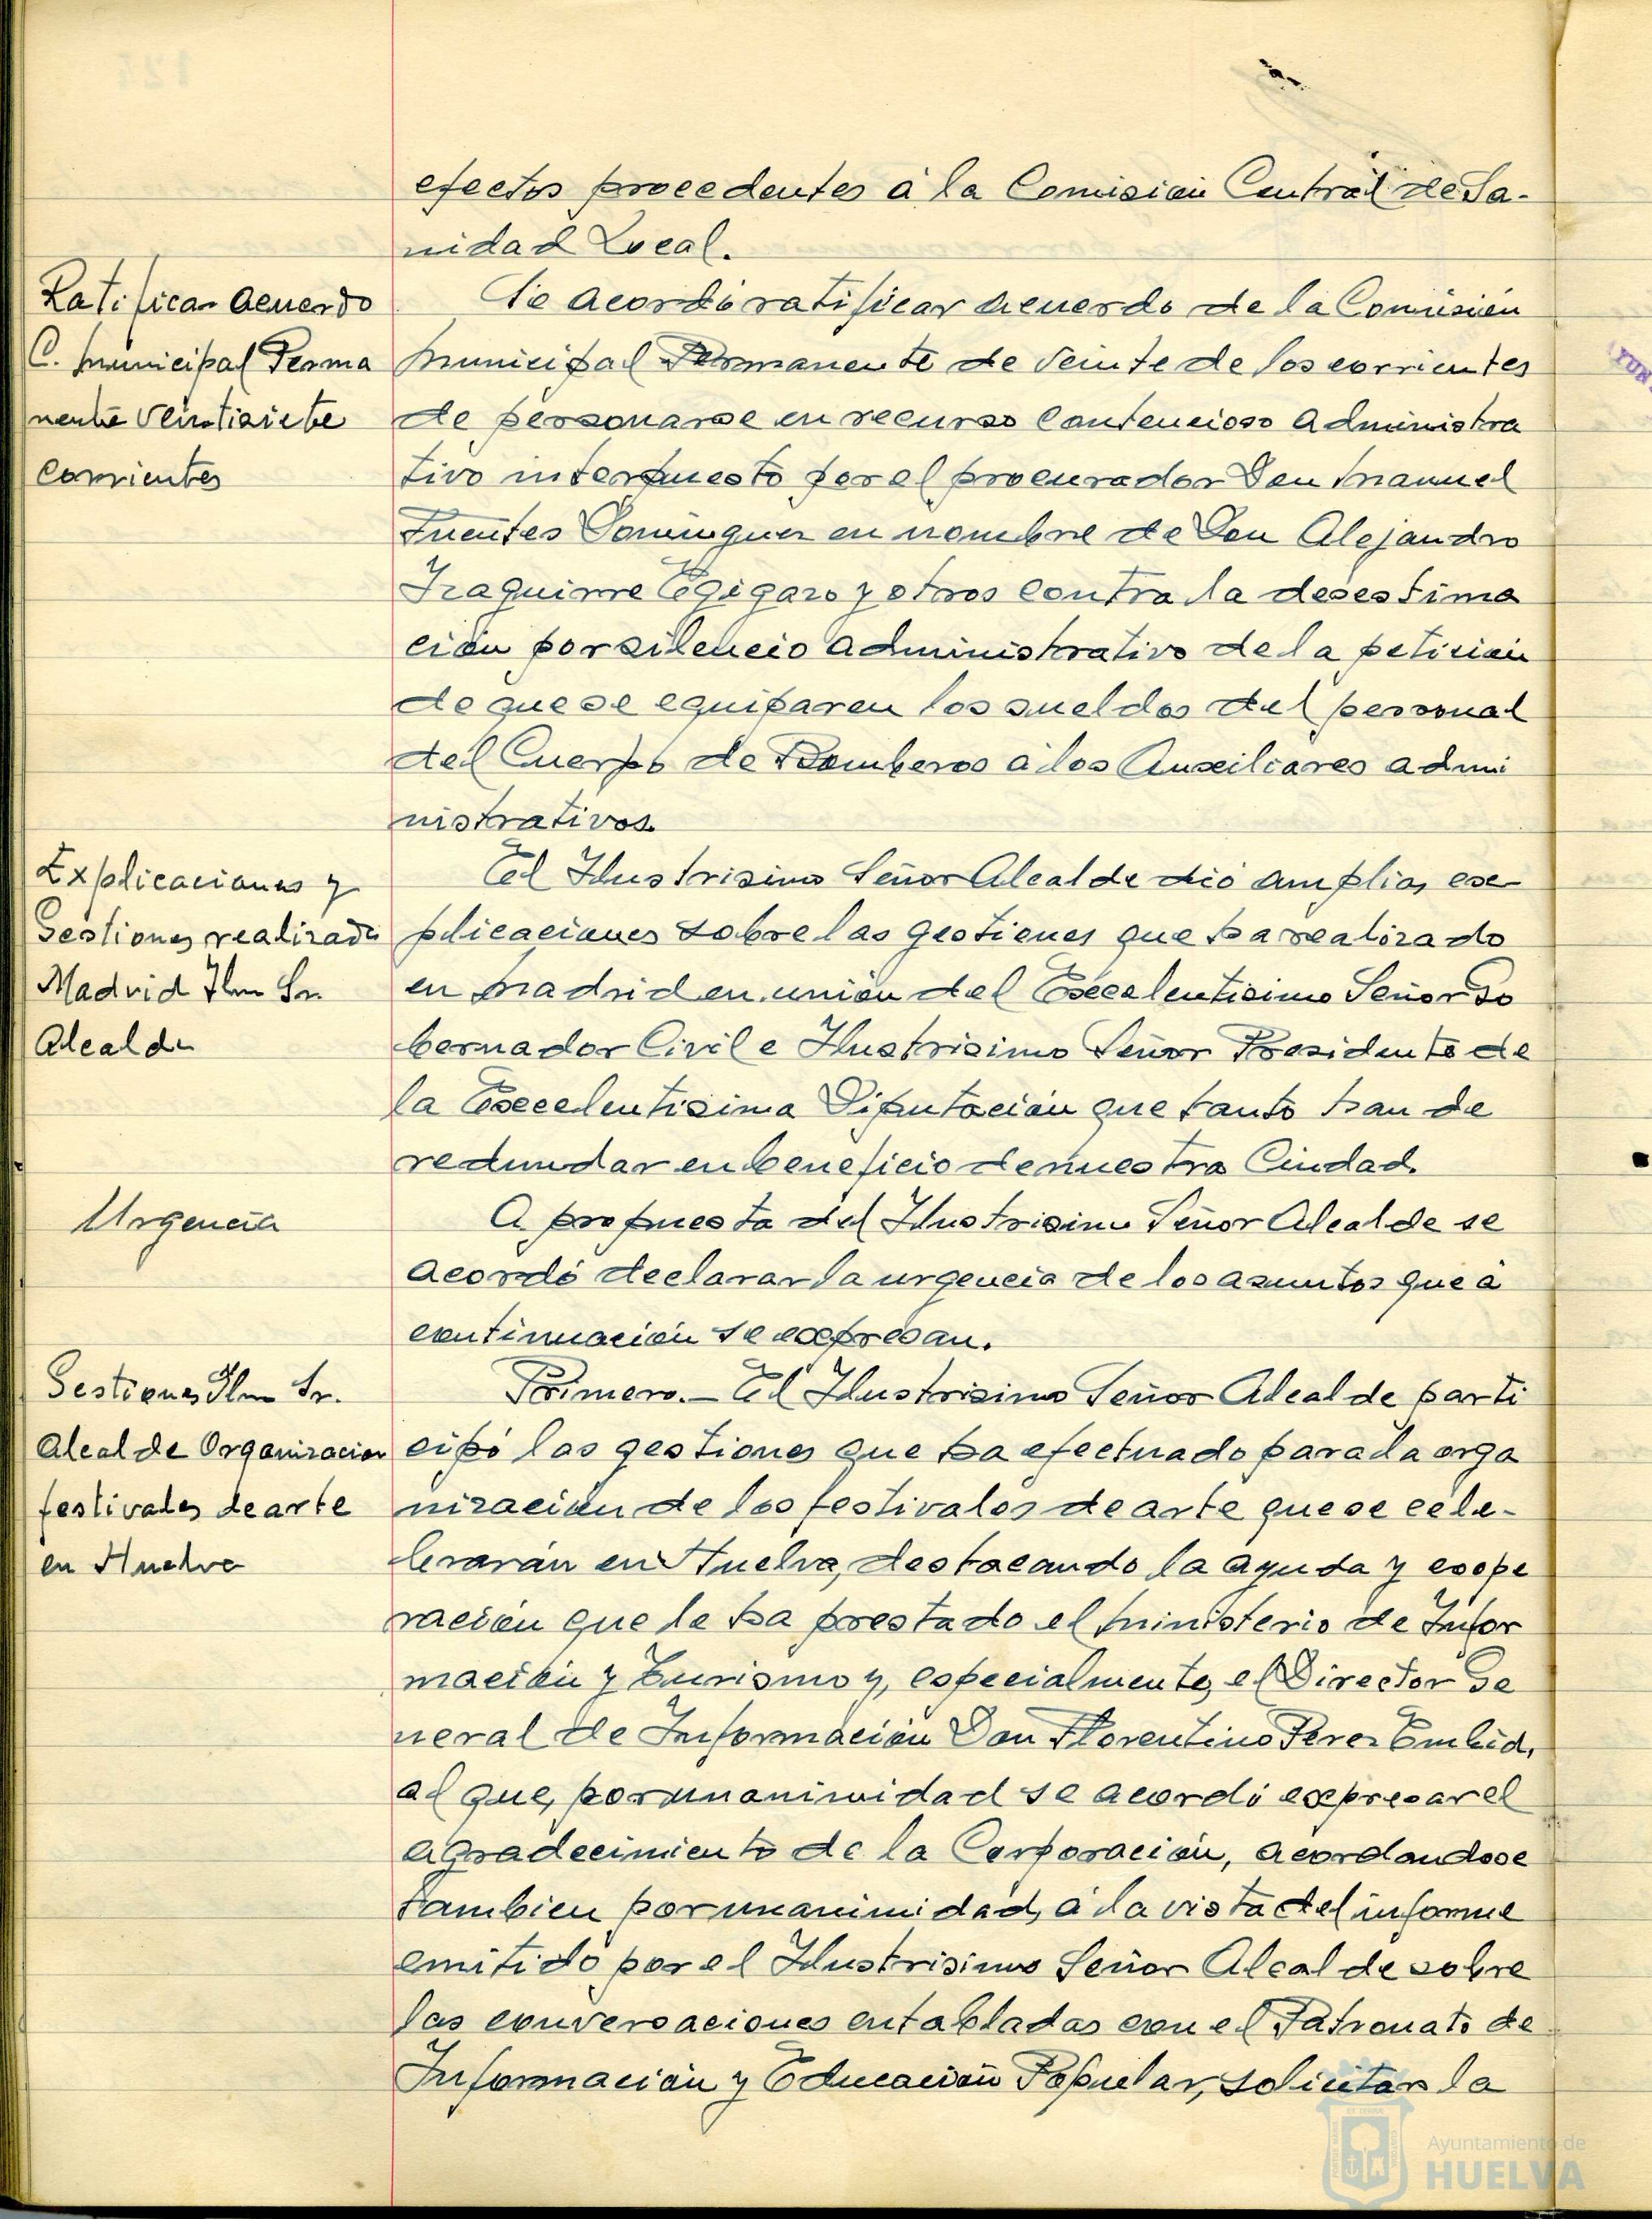 efectos procedentes á la Comisión Central de Sa-
nidad Local.
Ratificar acuerdo
C. Municipal Perma
nente veintisiete
corrientes
Se acordó ratificar acuerdo de la Comisión
Municipal Permanente de veinte de los corrientes
de personarse en recurso contencioso administra
tivo interpuesto por el procurador Don Manuel
Fuentes Dominguez en nombre de Don Alejandro
Izaguirre y otros contra la desestima
ción por silencio administrativo de la petición
de que se equiparen los sueldos del personal
del Cuerpo de Bomberos á los Auxiliares admi
nistrativos.
Explicaciones y
Gestiones realizada
Madrid Ilmo Sr.
Alcalde
El Ilustrisimo Señor Alcalde dió amplias ex-
plicaciones sobre las gestiones que ha realizado
en Madrid en unión del Excelentisimo Señor Go
bernador Civil e Ilustrisimo Señor Presidente de
la Excelentisima Diputación que tanto han de
redundar en beneficio de nuestra Ciudad.
Urgencia
A propuesta del Ilustrisimo Señor Alcalde se
acordó declarar la urgencia de los asuntos que á
continuación se expresan.
Gestiones Ilmo Sr.
Alcalde Organizacion
festivales de arte
en Huelva
Primero.- El Ilustrisimo Señor Alcalde parti
cipó las gestiones que ha efectuado para la orga
nización de los festivales de arte que se cele-
brarán en Huelva, destacando la ayuda y coope
ración que le ha prestado el Ministerio de Infor
mación y Turismo y, especialmente, el Director Ge
neral de Información Don Florentino Perez Embid,
al que, por unanimidad se acordó expresar el
agradecimiento de la Corporación, acordandose
tambien por unanimidad, á la vista del informe
emitido por el Ilustrisimo Señor Alcalde sobre
las conversaciones entabladas con el Patronato de
Información y Educación Popular, solicitar la
Ayuntamiento de
HUELVA